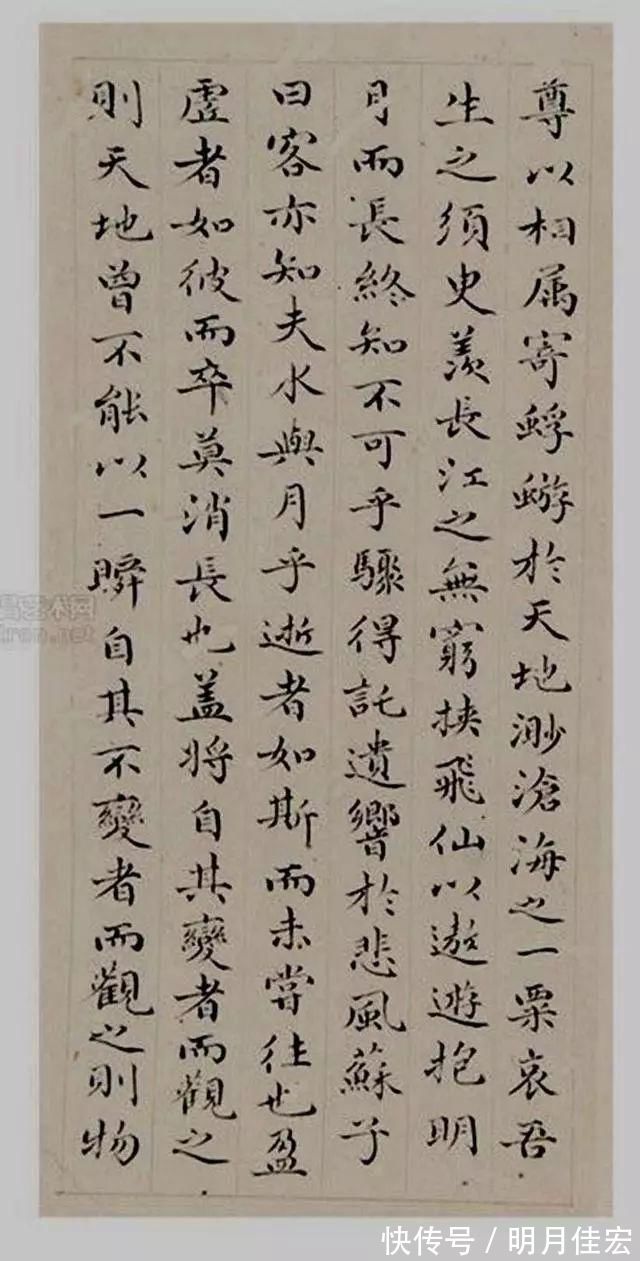 尊以相属寄蜉蝣於天地渺滄海之一粟哀吾
生之須臾羨長江之無窮挾飛仙以遨遊抱明
月而長終知不可乎驟得託遺響於悲風蘇子
曰客亦知夫水與月乎逝者如斯而未嘗往也盈
虛者如彼而卒莫消長也盖將自其變者而觀之
則天地曾不能以一瞬自其不變者而觀之則物
艺术网
.net
快传号 / 明月佳宏